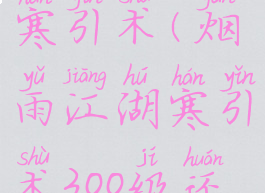 hán yǐn shù yān
寒引术(烟
yǔ jiāng hú hán yǐn
雨江湖寒引
shù jí huán
术300级还